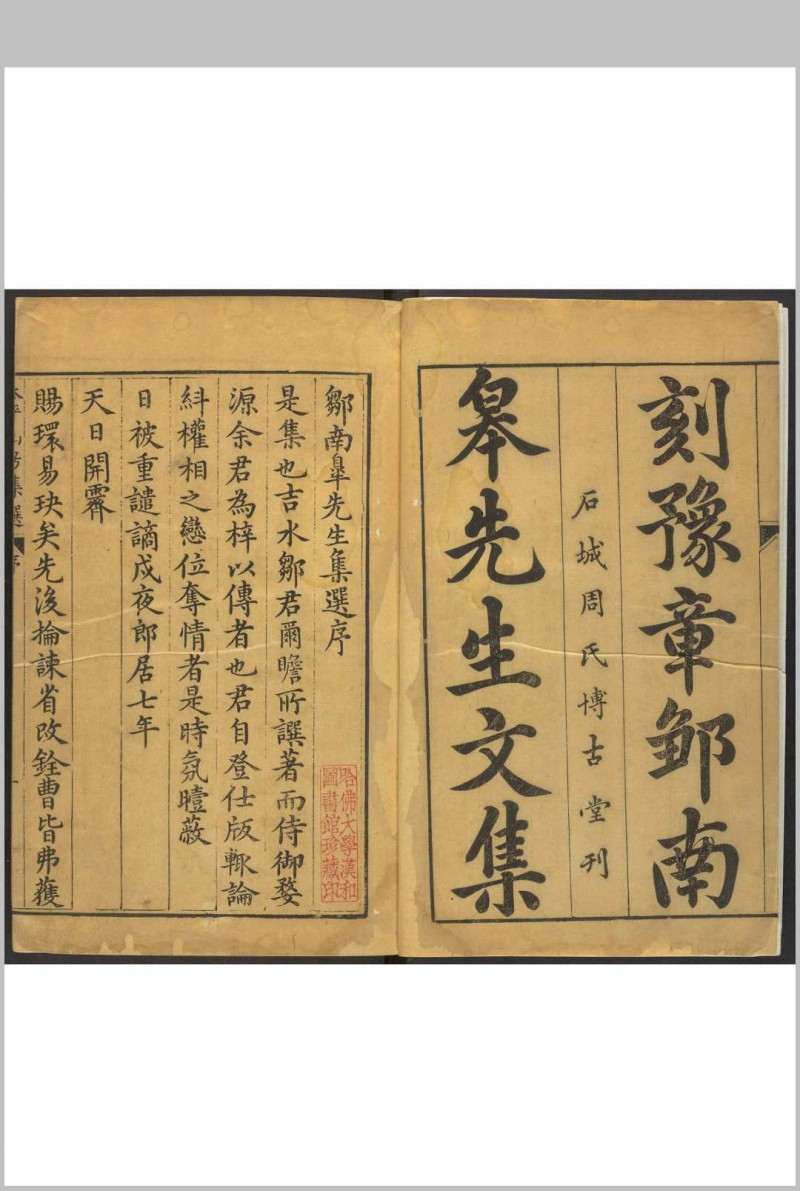 刻豫章邹南
石城周氏博古堂刊
皋先生文集
鄒南臯先生集選序
哈佛大學漢和
圖書館珍藏印
是集也吉水鄒君爾瞻所譔著而侍御婺
源余君為梓以傳者也君自登仕版輒論
糾權相之戀位奪情者是時氛曀蔽
日被重譴謫戍夜郎居七年
天日開霽
賜環易玦矣先後掄諫省改銓曹皆弗獲
集選
序